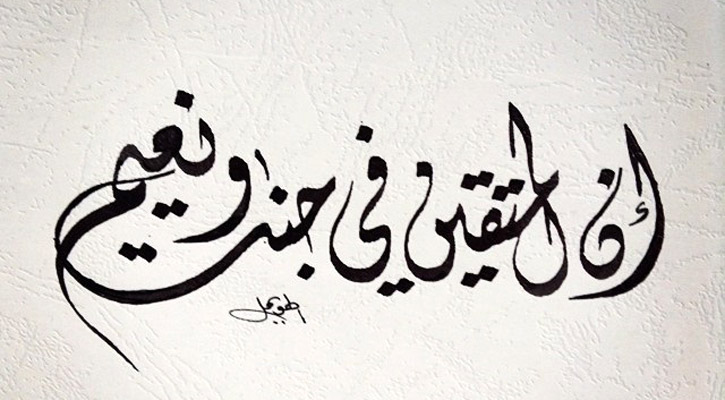 إن المتقين في جنت ونعيم